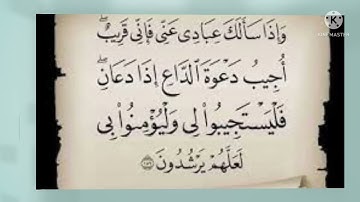 وَإِذَا سَأَلَكَ عِبَادِى عَنِّى فَإِنِّى قَرِيبٌ ۖ
أُجِيبُ دَعْوَةَ ٱلدَّاعِ إِذَا دَعَانِ ۖ
فَلْيَسْتَجِيبُوا۟ لِى وَلْيُؤْمِنُوا۟ بِى
لَعَلَّهُمْ يَرْشُدُونَ ١٨٦